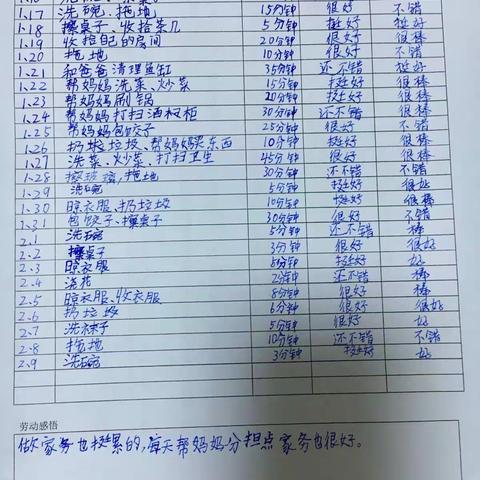 1.17 洗碗、拖地 15分钟 很好 不错
1.18 擦桌子、收拾茶几 5分钟 挺好 挺好
1.19 收拾自己的房间 20分钟 很好 很棒
1.20 拖地 10分钟 很好 不错
1.21 和爸爸清理鱼缸 35分钟 还不错 挺好
1.22 帮妈妈洗菜、炒菜 15分钟 挺好 很棒
1.23 帮妈妈刷锅 20分钟 挺好 很棒
1.24 帮妈妈打扫酒柜 30分钟 还不错 很棒
1.25 帮妈妈包饺子 25分钟 很好 不错
1.26 扔垃圾、帮妈妈买东西 10分钟 挺好 很棒
1.27 洗菜、炒菜、打扫卫生 45分钟 很好 很棒
1.28 擦玻璃、拖地 30分钟 还不错 不错
1.29 洗碗 5分钟 挺好 很好
1.30 晾衣服、扔垃圾 10分钟 挺好 很棒
1.31 包饺子、擦桌子 30分钟 很好 不错
2.1 洗碗 5分钟 还不错 棒
2.2 擦桌子 3分钟 很好 很好
2.3 晾衣服 5分钟 挺好 好
2.4 浇花 2分钟 还不错 棒
2.5 晾衣服、收衣服 8分钟 很好 棒
2.6 扔垃圾 6分钟 很好 很好
2.7 洗袜子 5分钟 很好 好
2.8 拖地 10分钟 还不错 不错
2.9 洗碗 3分钟 挺好 好
劳动感悟
做家务也挺累的,每天帮妈妈分担点家务也很好。